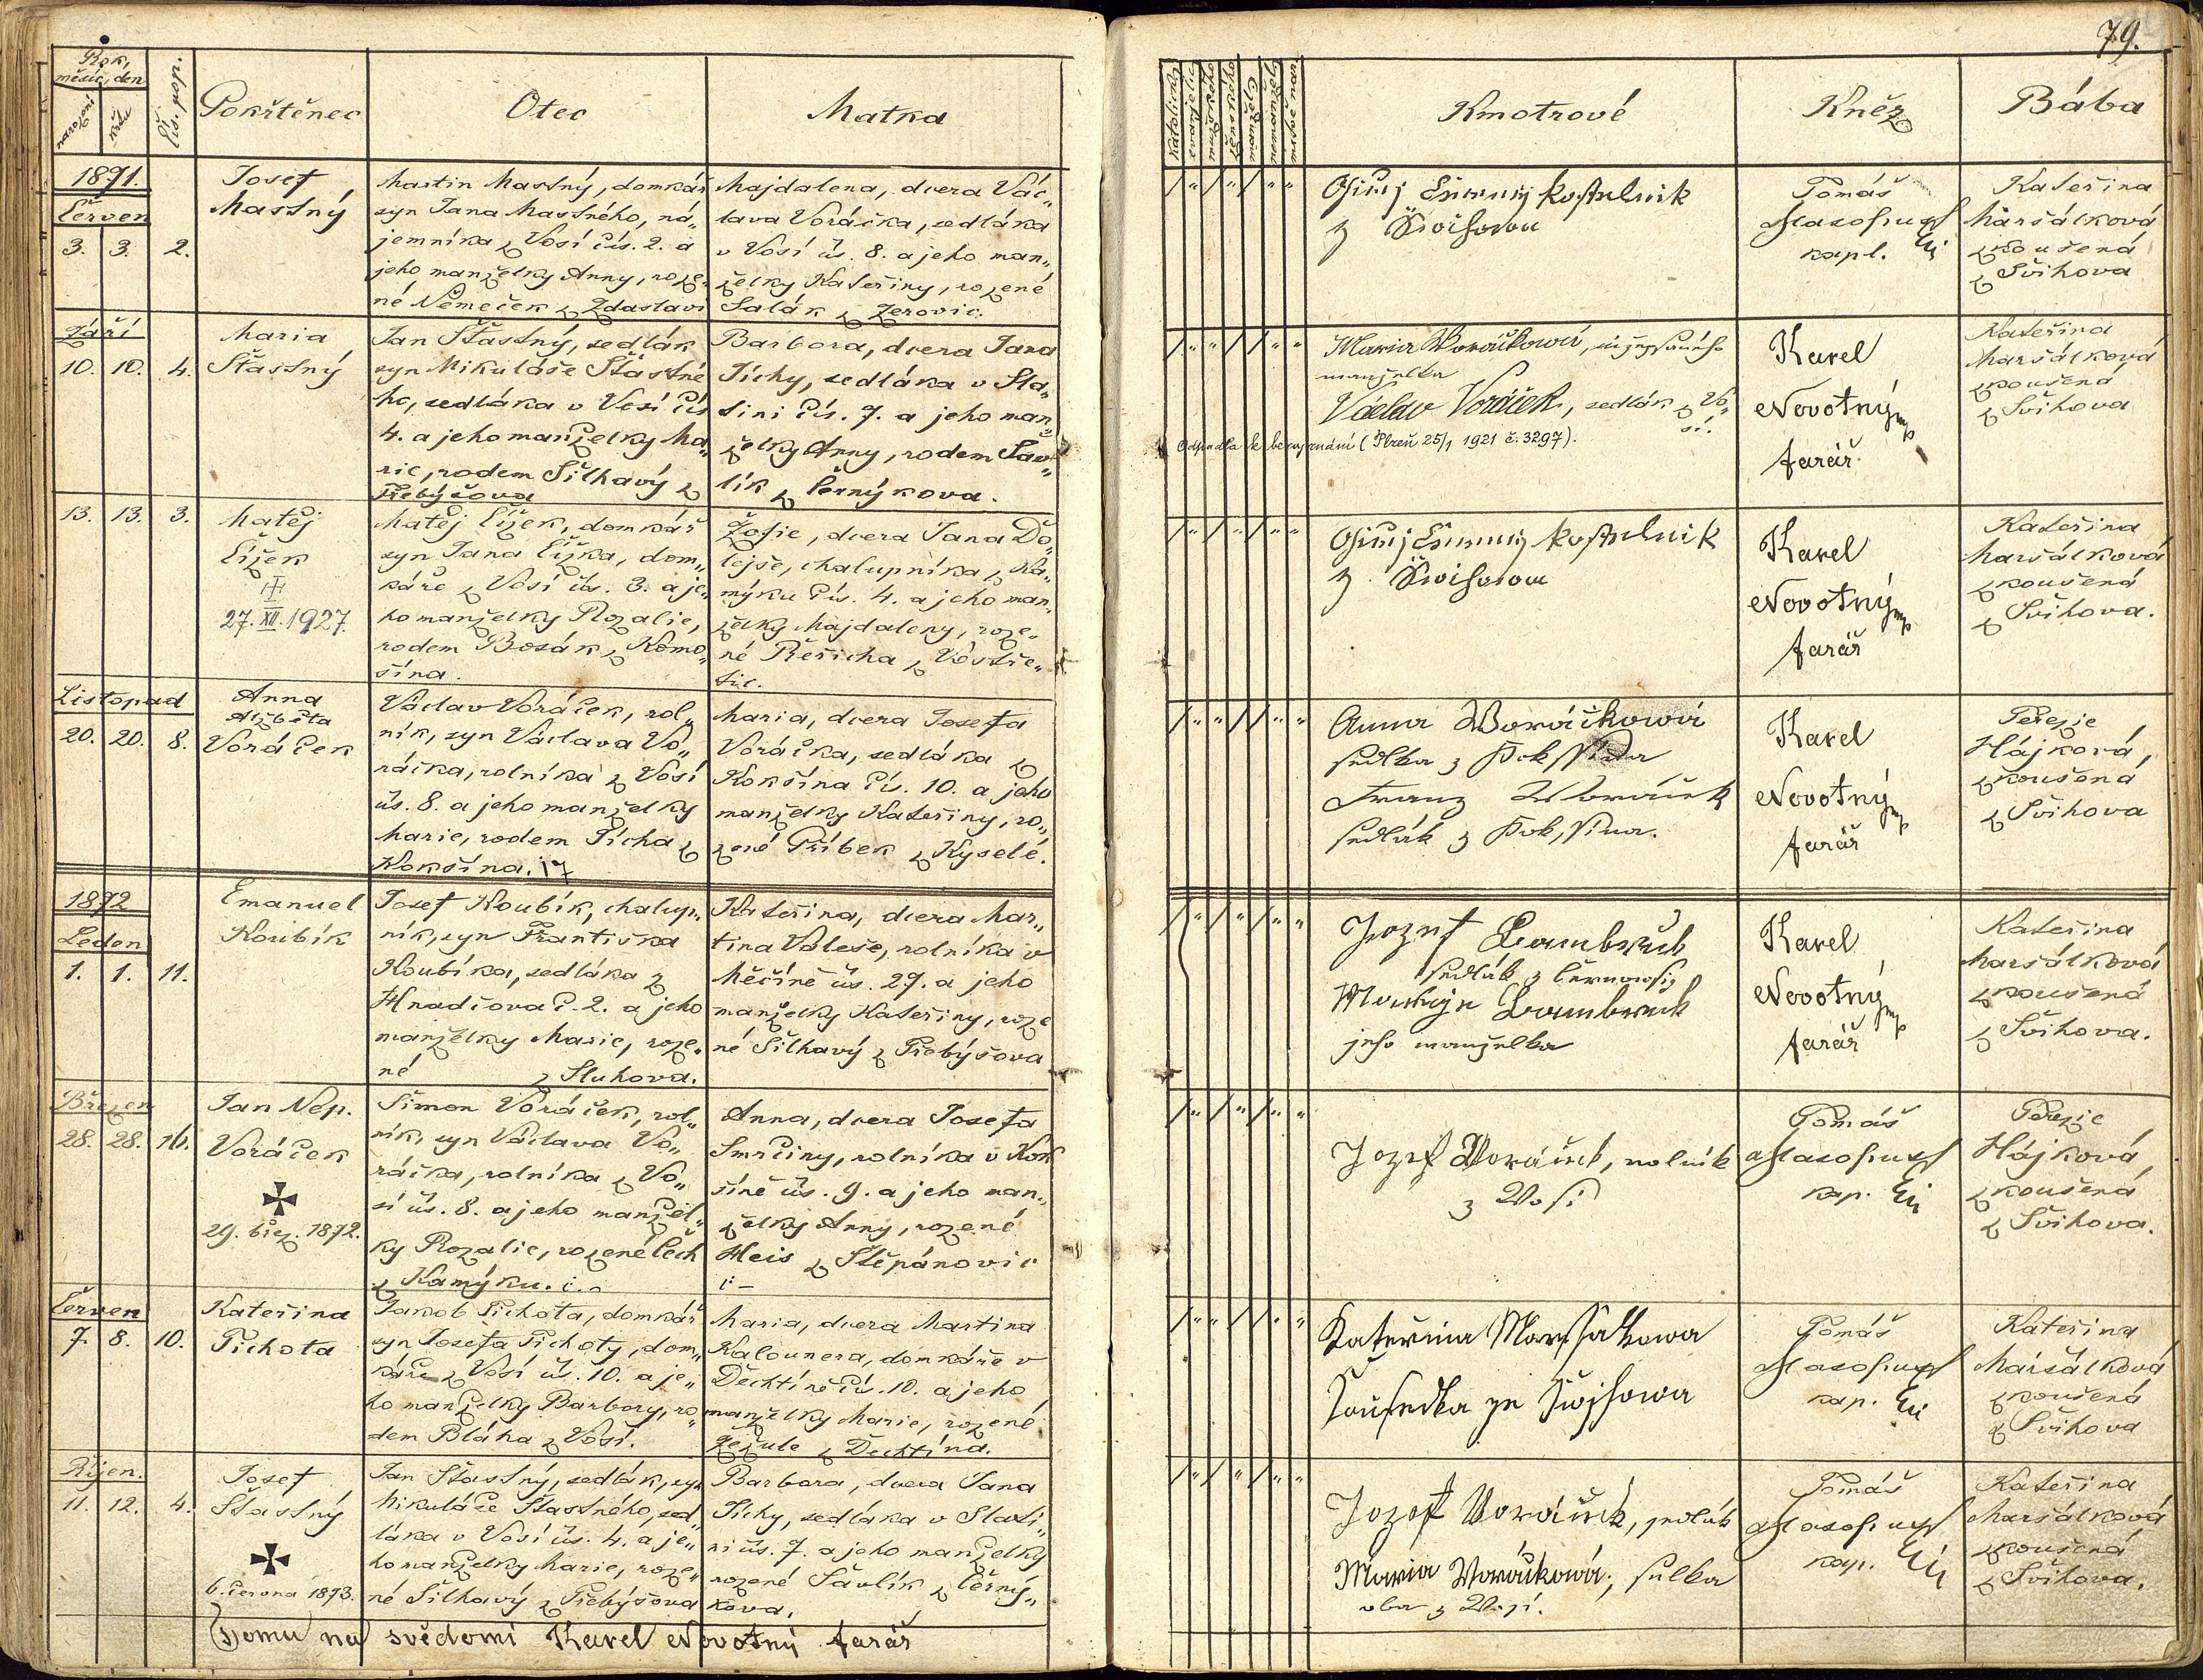 79.
Rok,
měsíc, den
narození
křtu
Čís. pop.
Pokřtěnec
Otec
Matka
Katolický
Kmotrové
Kněz
Bába
1871.
Červen
3. 3. 2.
Josef
Mastný
Martin Mastný, domkář
syn Jana Mastného, ná„
jemníka z Vosí čís. 2. a
jeho manželky Anny, roze„
né Němeček z Zdaslavi
Majdalena, dcera Vác„
lava Voráčka, sedláka
v Vosí čís. 8. a jeho man„
želky Kateřiny, rozené
Salák z Žerovic.
kostelnik
z
Tomáš
kapl.
Kateřina
Maršálková
zkoušená
z Švihova
Září
10. 10. 4.
Maria
Šťastný
Jan Šťastný, sedlák
syn Mikuláše Šťastné
ho, sedláka v Vosí čís
4. a jeho manželky Ma„
rie, rodem Šilhavý z
Přebyšova
Barbora, dcera Jana
Tichy, sedláka v Sla„
tini čís. 7. a jeho man„
želky Anny, rodem Šav„
lík z Černýkova.
Maria Woráčkowá,
manželka
Václav Voráček, sedlák z Vo„
sí.
Odpadla k bezvyznání (Plzeň 25/1 1921 č. 3297).
Karel
Novotný mp
farář
Kateřina
Maršálková
zkoušená
z Švihova
13. 13. 3.
Matěj
Čížek
27. XII. 1927.
Matěj Čížek, domkář
syn Jana Čížka, dom„
káře z Vosí čís. 3. a je„
ho manželky Rozalie,
rodem Bosák z Komo„
šína.
Žofie, dcera Jana Do„
lejše, chalupníka z Ka„
mýku čís. 4. a jeho man„
želky Majdaleny, roze„
né Řeřicha z Vostře„
tic.
kostelnik
z
Karel
Novotný mp
farář
Kateřina
Maršálková
zkoušená
z Švihova.
Listopad
20. 20. 8.
Anna
Alžběta
Voráček
Václav Voráček, rol„
ník, syn Václava Vo„
ráčka, rolníka z Vosí
čís. 8. a jeho manželky
Marie, rodem Tícha z
Kokšína. 17
Maria, dcera Josefa
Voráčka, sedláka z
Kokšína čís. 10. a jeho
manželky Kateřiny, ro„
zené Příbek z Kyselé.
Anna Woráčkowá
sedlka z Kokssína
Franz Woráček
sedlák z Kokssína.
Karel
Novotný mp
farář
Terezie
Hájková,
zkoušená
z Švihova
1872
Leden
1. 1. 11.
Emanuel
Koubík
Josef Koubík, chalup„
ník, syn Františka
Koubíka, sedláka z
Hradčova č. 2. a jeho
manželky Marie, roze„
né z Sluhova.
Kateřina, dcera Mar„
tina Váleše, rolníka v
Měčíně čís. 27. a jeho
manželky Kateřiny, roze
né Šilhavý z Přebyšova
Jozef
sedlák z
jeho manželka
Karel
Novotný mp
farář
Kateřina
Maršálková
zkoušená
z Švihova.
Březen
28. 28. 16.
Jan Nep.
Voráček
29. břez. 1872.
Šimon Voráček, rol„
ník, syn Václava Vo„
ráčka, rolníka z Vo„
sí čís. 8. a jeho manžel„
ky Rozalie, rozené Čech
z Kamýku.
Anna, dcera Josefa
Smrčiny, rolníka v Kok
šíně čís. 9. a jeho man„
želky Anny, rozené
Heis z Štěpánovic
Jozef Woráček, rolník
z Wosí
Tomáš
kap.
Terezie
Hájková,
zkoušená
z Švihova.
Červen
7. 8. 10.
Kateřina
Tichota
Jakob Tichota, domkář
syn Josefa Tichoty, dom„
káře z Vosí čís. 10. a je„
ho manželky Barbory, ro„
dem Bláha z Vosí.
Maria, dcera Martina
Kalounera, domkáře v
Dechtíně čís. 10. a jeho
manželky Marie, rozené
z Dechtína.
Kateřina Marssalkowa
Sousedka ze Swihowa
Tomáš
kap.
Kateřina
Maršálková
zkoušená
z Švihova
Říjen.
11. 12. 4.
Josef
Šťastný
6. června 1873.
Jan Šťastný, sedlák, syn
Mikuláše Šťastného, sed„
láka v Vosí čís. 4. a je„
ho manželky Marie, roze„
né Šilhavý z Přebyšova
Barbora, dcera Jana
Tichy, sedláka v Slati„
ni čís. 7. a jeho manželky
rozené Šavlík z Černý„
kova.
Jozef Woráček, sedlák
Maria Woráčkowá, selka
oba z Wosí.
Tomáš
kap.
Kateřina
Maršálková
zkoušená
z Švihova.
Tomu na svědomí Karel Novotný farář